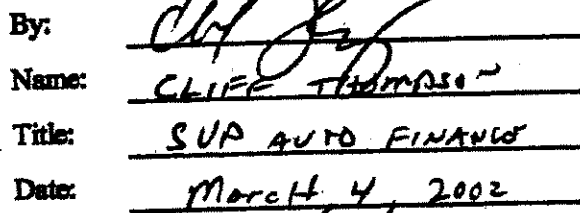 By:
Name: CLIFF THOMPSON
Title: SVP AUTO FINANCE
Date: March 4, 2002